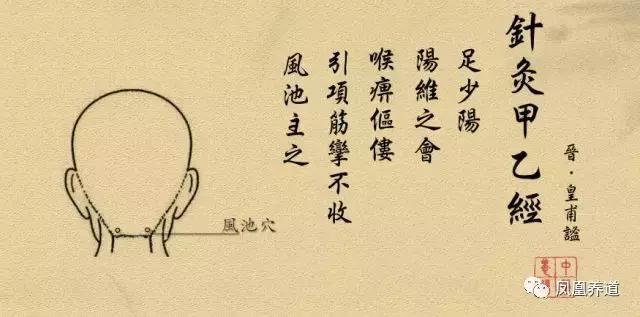 針灸甲乙經
晉·皇甫謐
足少陽
陽維之會
喉痹傴僂
引項筋攣不收
風池主之
風池穴
凤凰养道